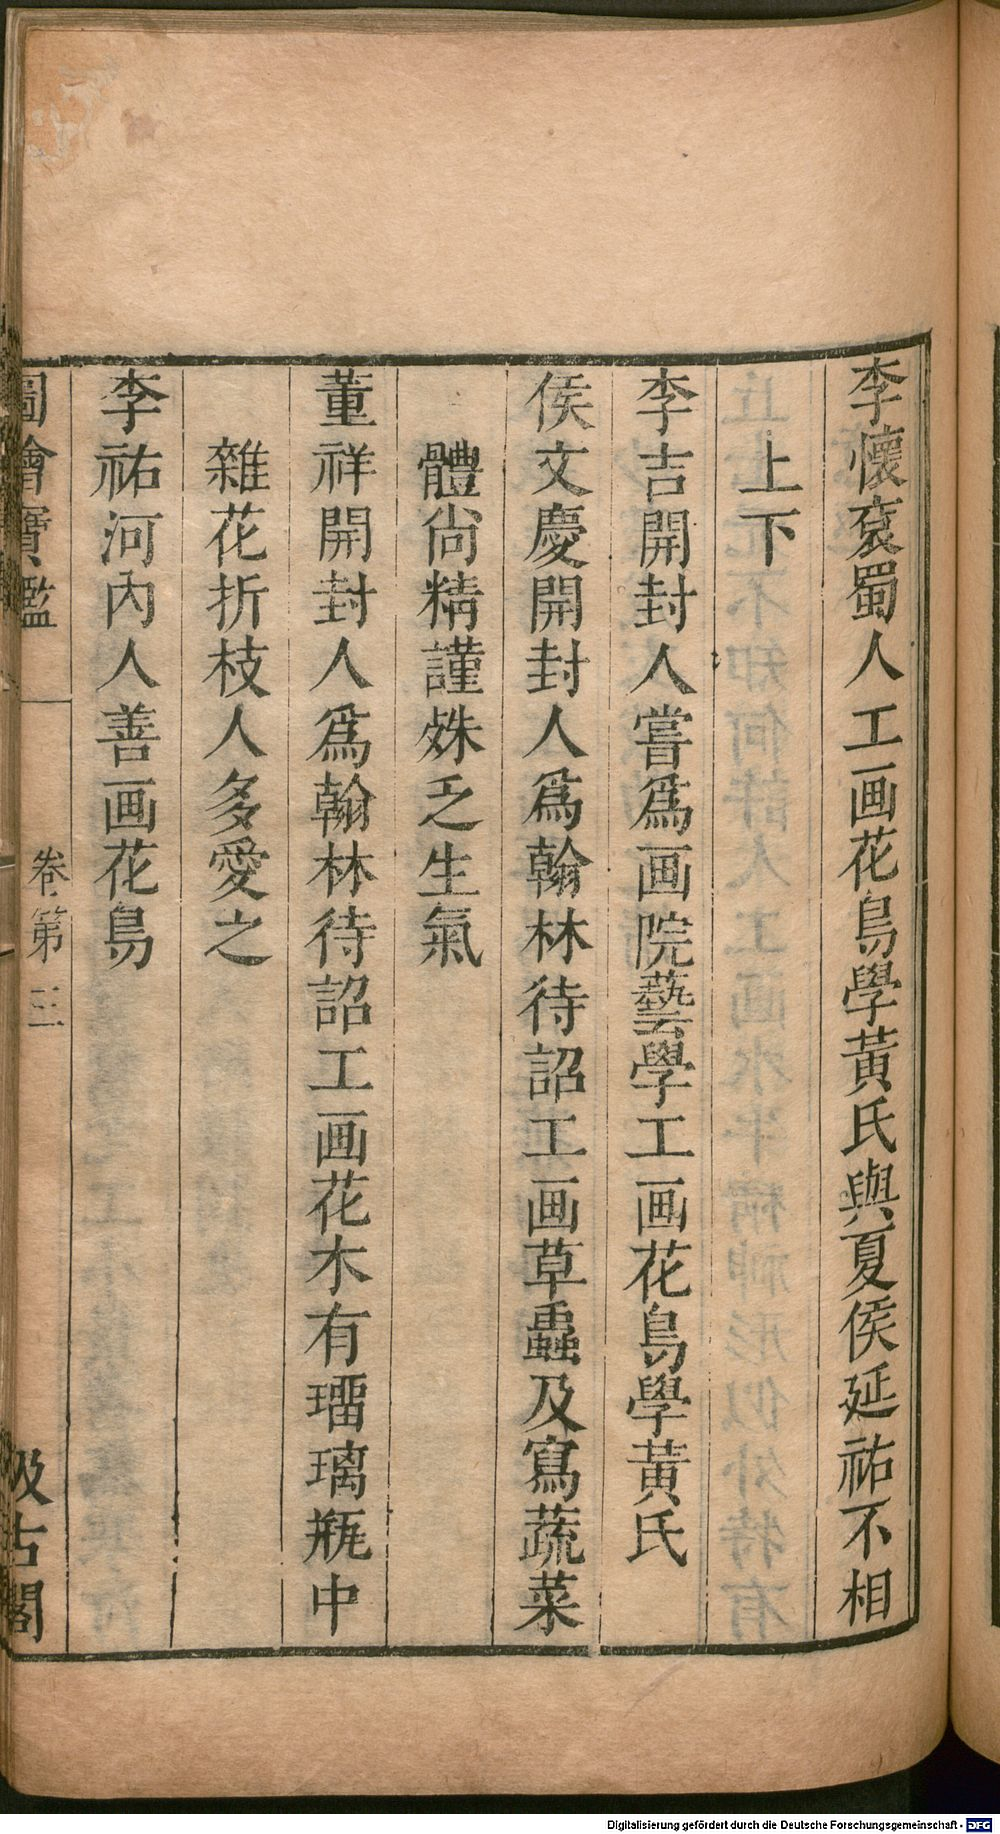 李懷袞蜀人工画花鳥學黃氏與夏侯延祐不相
上下
李吉開封人嘗爲画院藝學工画花鳥學黃氏
侯文慶開封人爲翰林待詔工画草蟲及寫蔬菜
體尙精謹姝乏生氣
董祥開封人爲翰林待詔工画花木有瑠璃瓶中
雜花折枝人多愛之
李祐河內人善画花鳥
圖繪寶鑑
卷第三
汲古閣
Digitalisierung gefördert durch die Deutsche Forschungsgemeinschaft - DFG